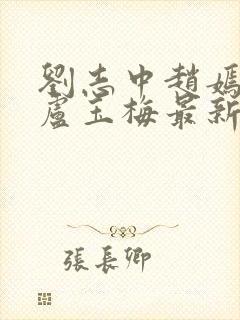 劉志中趙媽
盧玉梅最新
張長卿